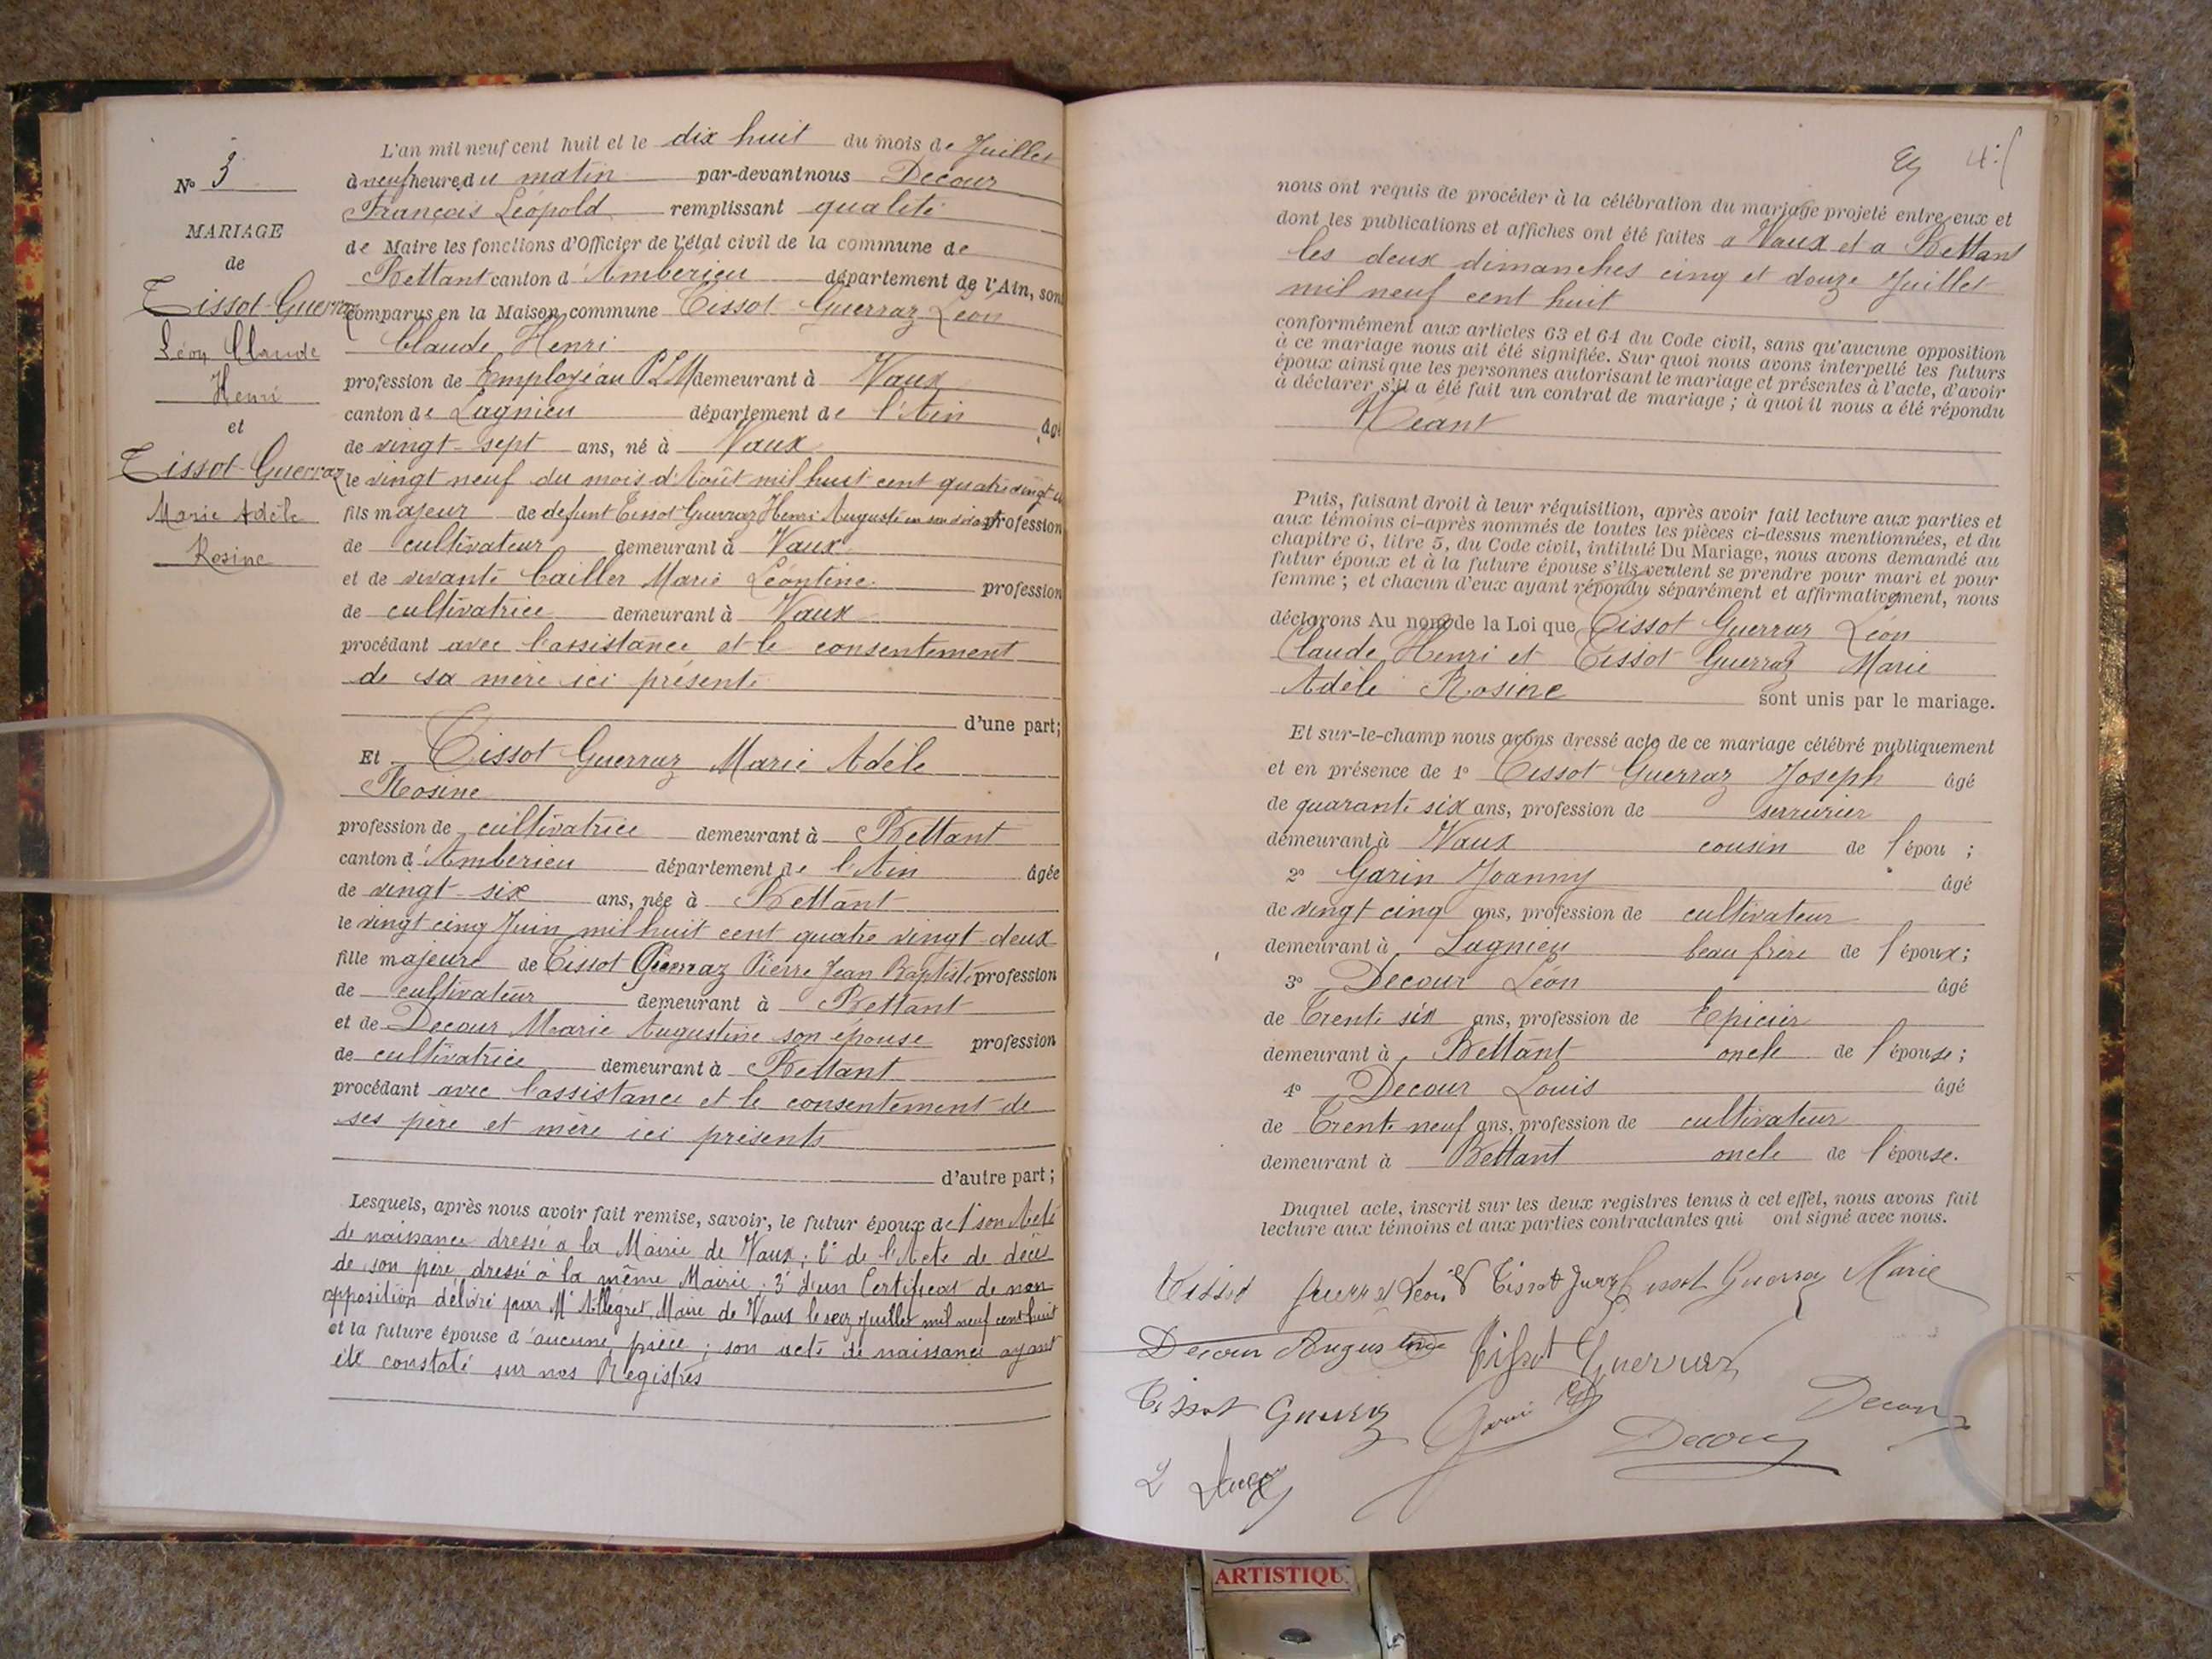 N° 3
MARIAGE
de
Tissot-Guerraz
Léon Claude
Henri
et
Tissot-Guerraz
Marie Adèle
Rosine
L'an mil neuf cent huit et le dix huit du mois de Juillet
à neuf heure du matin par-devant nous Decour
François Léopold remplissant qualité
de Maire les fonctions d'Officier de l'état civil de la commune de
Bettant canton d'Ambérieu département de l'Ain, sont
comparus en la Maison commune Tissot-Guerraz Léon
Claude Henri
profession de Employé au P L M demeurant à Vaux
canton de Lagnieu département de l'Ain âgé
de vingt-sept ans, né à Vaux
le vingt neuf du mois d'Août mil huit cent quatre vingt
fils majeur de defunt Tissot Guerraz Henri Auguste en son vivant profession
de cultivateur demeurant à Vaux
et de vivante Cailler Marie Léontine profession
de cultivatrice demeurant à Vaux
procédant avec l'assistance et le consentement
de sa mère ici présente
d'une part;
Et Tissot-Guerraz Marie Adèle
Rosine
profession de cultivatrice demeurant à Bettant
canton d'Ambérieu département de l'Ain âgée
de vingt-six ans, née à Bettant
le vingt cinq Juin mil huit cent quatre vingt-deux
fille majeure de Tissot Guerraz Pierre Jean Baptiste profession
de cultivateur demeurant à Bettant
et de Decour Marie Augustine son épouse profession
de cultivatrice demeurant à Bettant
procédant avec l'assistance et le consentement de
ses père et mère ici présents
d'autre part;
Lesquels, après nous avoir fait remise, savoir, le futur époux de 1° son Acte
de naissance dressé à la Mairie de Vaux; 2° de l'Acte de décès
de son père, dressé à la même Mairie; 3° d'un Certificat de non-
opposition délivré par Mr Allégret Maire de Vaux le seize juillet mil neuf cent huit
et la future épouse d'aucune pièce; son acte de naissance ayant
été constaté sur nos Registres
nous ont requis de procéder à la célébration du mariage projeté entre eux et
dont les publications et affiches ont été faites à Vaux et à Bettant
les deux dimanches cinq et douze Juillet
mil neuf cent huit
conformément aux articles 63 et 64 du Code civil, sans qu'aucune opposition
à ce mariage nous ait été signifiée. Sur quoi nous avons interpellé les futurs
époux ainsi que les personnes autorisant le mariage et présentes à l'acte, d'avoir
à déclarer s'il a été fait un contrat de mariage; à quoi il nous a été répondu
Néant
Puis, faisant droit à leur réquisition, après avoir fait lecture aux parties et
aux témoins ci-après nommés de toutes les pièces ci-dessus mentionnées, et du
chapitre 6, titre 5, du Code civil, intitulé Du Mariage, nous avons demandé au
futur époux et à la future épouse s'ils veulent se prendre pour mari et pour
femme; et chacun d'eux ayant répondu séparément et affirmativement, nous
déclarons Au nom de la Loi que Tissot Guerraz Léon
Claude Henri et Tissot Guerraz Marie
Adèle Rosine sont unis par le mariage.
Et sur-le-champ nous avons dressé acte de ce mariage célébré publiquement
et en présence de 1° Tissot Guerraz Joseph âgé
de quarante six ans, profession de serrurier
demeurant à Vaux cousin de l'épou ;
2° Garin Joanny âgé
de vingt cinq ans, profession de cultivateur
demeurant à Lagnieu beau frère de l'époux;
3° Decour Léon âgé
de Trente six ans, profession de Epicier
demeurant à Bettant oncle de l'épouse;
4° Decour Louis âgé
de Trente neuf ans, profession de cultivateur
demeurant à Bettant oncle de l'épouse.
Duquel acte, inscrit sur les deux registres tenus à cet effet, nous avons fait
lecture aux témoins et aux parties contractantes qui ont signé avec nous.
Tissot Guerraz Léon Tissot Tissot Guerraz Marie
Decour Augustine Tissot Guerraz
Tissot Guerraz Garin Decour Decour
L Decour
ARTISTIQU